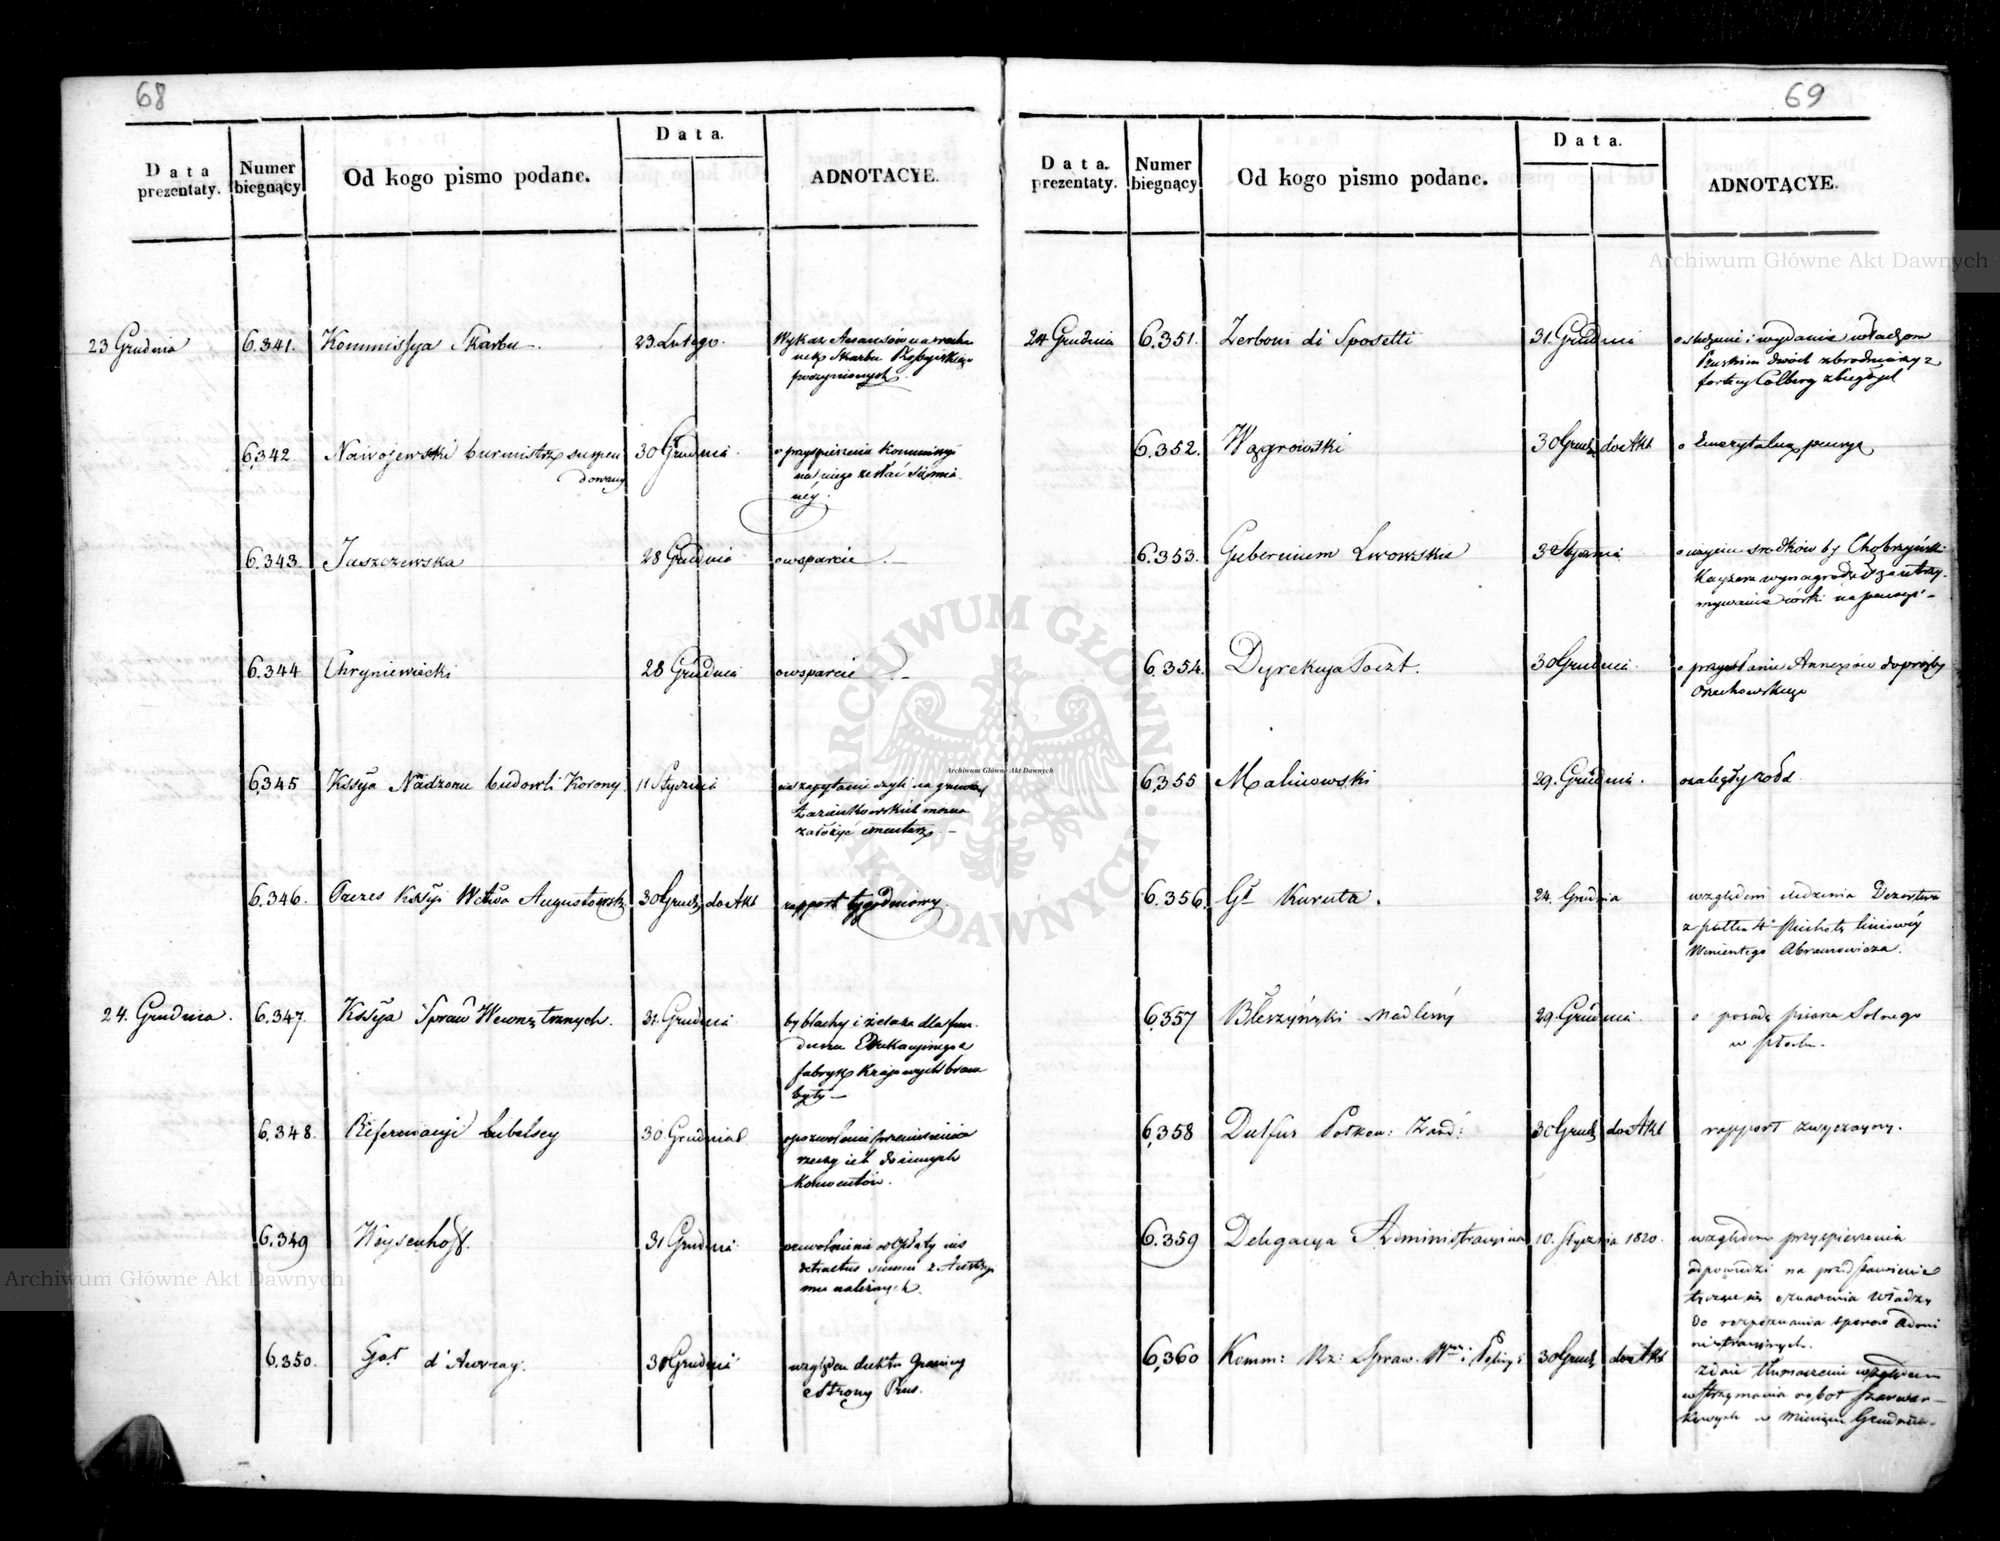 68
Data prezentaty. Numer biegnący Od kogo pismo podane. Data. ADNOTACYE.
23 Grudnia 6.341. Kommissya Skarbu 23. Lutego. Wykaz na rachu
nek Skarbu
poczynionych.
6.342 Nawojewski burmistrz suspen 30 Grudnia o przyspieszenie
dowany na niego
ney.
6.343. Jaszczewska 28 Grudnia o wsparcie.
6.344 Chryniewiecki 28 Grudnia o wsparcie
6.345 Kssya Nadzoru budowli Korony 11 Stycznia na zapytanie czyli na gruntach
Łazienkowskich można
założyć cmentarz.
6.346. Prezes Kssyi Wctwa Augustowsk 30 Grud doAkt rapport tygodniowy.
24. Grudnia. 6.347. Kssya Spraw Wewnętrznych. 31. Grudnia by blachy i żelaza dla fun
duszu Edukacyinego z
fabryk Krajowych brane
były
6.348. Reformacyi Lubelscy 30 Grudnia o pozwolenie przeniesienia
rzeczy ich do innych
Konwentów.
6.349 Weysenhoff. 31 Grudnia o uwolnienie od opłaty ius
detractus summ z Austryi
mu należnych.
6.350. Gał d'Auvray. 30 Grudnia względem duktu Granicy
z Strony Prus.
69
Data. prezentaty. Numer biegnący Od kogo pismo podane. Data. ADNOTACYE.
24 Grudnia 6.351. Zerboni di Sposetti 31. Grudnia o śledzenie i wydanie władzom
Pruskim dwóch zbrodniarzy z
fortecy Colberg zbiegłych
6.352. Wągrowski 30 Grud doAkt o Emerytalną pensyą
6.353. Gubernium Lwowskie Stycznia o użycie srodków by Chobrzyński
Kayzera wynagrodził za utrzy-
mywanie córki na pensyi
6.354. Dyrekcya Poczt. 30 Grudnia o przysłanie Annexów do prośby
Orzechowskiego
6.355 Malinowski 29. Grudnia. o zaległy żołd.
6.356. Gł Kuruta. 24. Grudnia względem śledzenia Dezertera
z pułku 4o Piechoty liniowéy
Wincentego Abramowicza.
6.357 Bleszyński Nadleśny 29. Grudnia o posadę pisarza Solnego
w Płocku.
6.358 Dulfus Połkow: Żand: 30 Grud doAkt rapport zwyczayny.
6.359 Delegacya Administracyina 10. Stycznia 1820. względem przyspieszenia
odpowiedzi na przedstawienie
tyczące się oznaczenia Władzy
do rozpoznania sporów Admi
nistracyinych.
6.360 Komm: Rz: Spraw. Wew: i Policyi 30 Grud doAkt zdaie tłumaczenie względem
wstrzymania robot szarwar-
kowych w Miesiącu Grudniu.
Archiwum Główne Akt Dawnych
Archiwum Główne Akt Dawnych
Archiwum Główne Akt Dawnych
ARCHIWUM GŁÓWNE AKT DAWNYCH